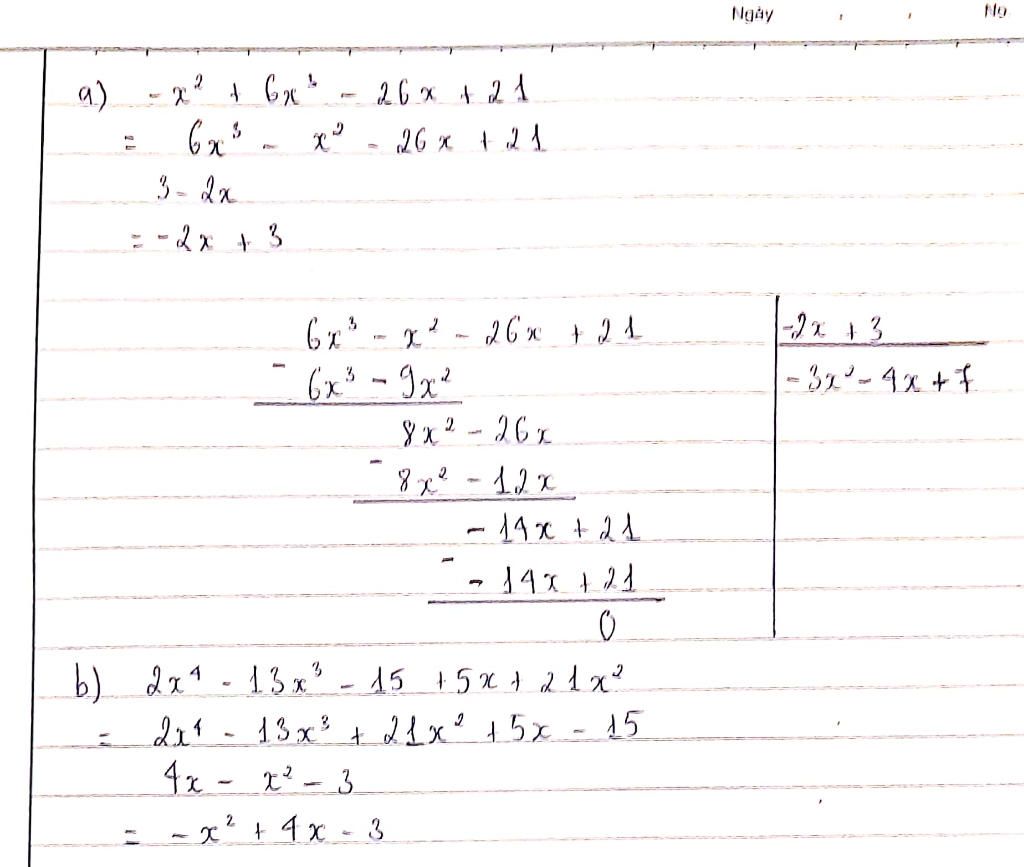 Ngày No.
a) -x² + 6x³ - 26x + 21
= 6x³ - x² - 26x + 21
3 - 2x
= -2x + 3
6x³ - x² - 26x + 21 | -2x + 3
- 6x³ - 9x² | -3x² - 4x + 7
8x² - 26x
- 8x² - 12x
- 14x + 21
- - 14x + 21
0
b) 2x⁴ - 13x³ - 15 + 5x + 21x²
= 2x⁴ - 13x³ + 21x² + 5x - 15
4x - x² - 3
= -x² + 4x - 3